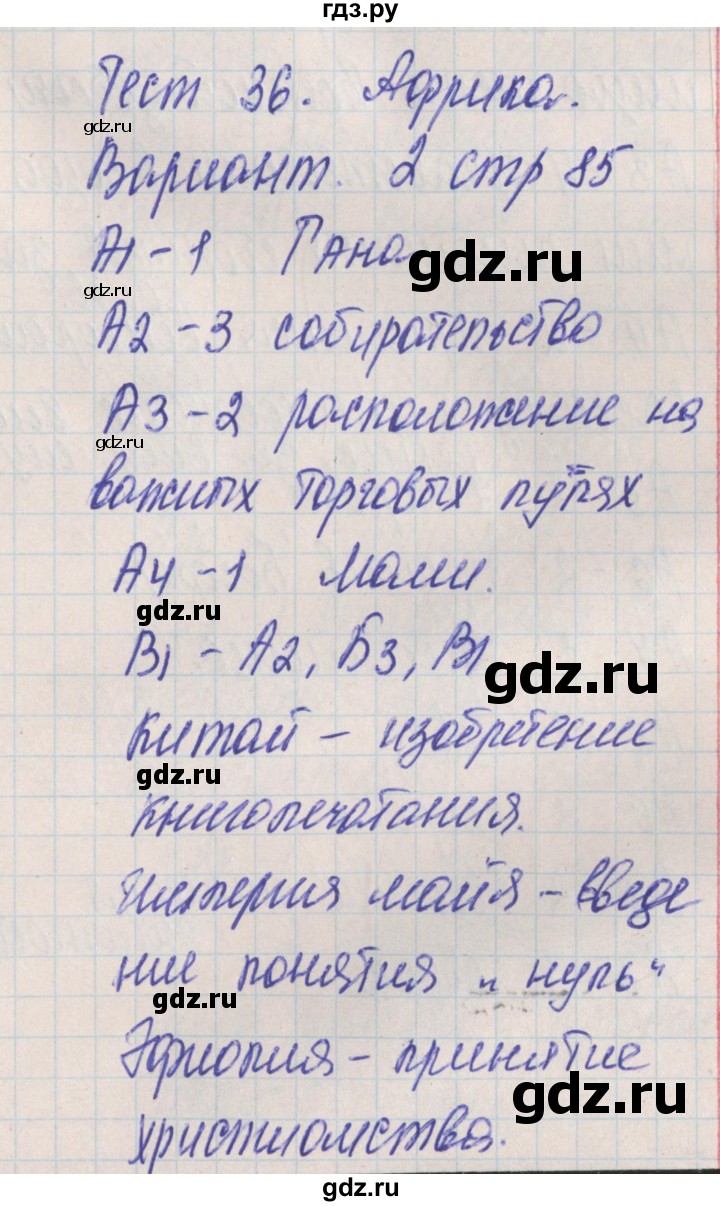 гдз.ру
Тест 36. Африка.
gdz.ru
Вариант. 2 стр 85
А1 - 1 Гана
gdz.ru
gdz.ru
А2 - 3 собирательство
А3 - 2 расположение на
gdz.ru
важных торговых путях
А4 - 1 Мали.
gdz.ru
В1 - А2, Б3, В1
gdz.ru
Китай - изобретение
gdz.ru
книгопечатания.
Империя майя - введе
ние понятия „нуль“
gdz.ru
Эфиопия - принятие
gdz.ru
христианства.
gdz.ru